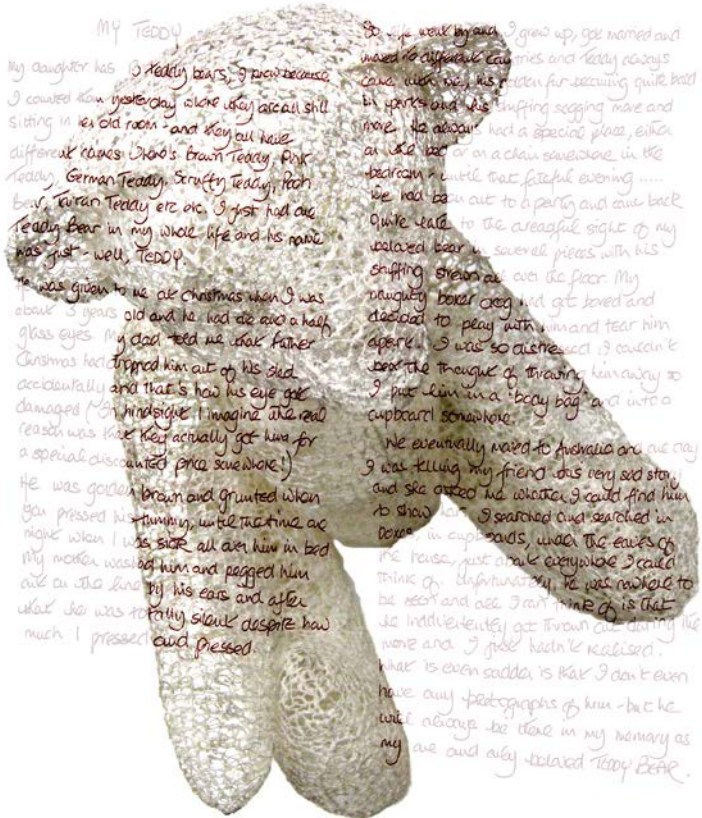 MY TEDDY
My daughter has teddy bears, I know because
I counted them yesterday where they are all still
sitting in her old room - and they all have
different names. There's Brown Teddy, Pink
Teddy, German Teddy, Scruffy Teddy, Pooh
Bear, Teddy etc etc. I just had one
Teddy Bear in my whole life and his name
was just - well, TEDDY.
He was given to me at Christmas when I was
about 3 years old and he had one and a half
glass eyes. My dad told me that Father
Christmas had dropped him out of his sled
accidentally and that's how his eye got
damaged (In hindsight I imagine the real
reason was that they actually got him for
a special discounted price somewhere!)
He was golden brown and grunted when
you pressed his tummy, until the time one
night when I was sick all over him in bed
My mother washed him and pegged him
out on the line by his ears and after
that he was totally silent despite how
much I pressed and pressed.
So life went by and I grew up, got married and
moved to different countries and Teddy always
came with me, his golden fur becoming quite bald
in parts and his stuffing sagging more and
more. He always had a special place, either
on the bed or on a chair somewhere in the
bedroom - until that fateful evening .....
We had been out to a party and came back
quite late to the dreadful sight of my
beloved bear in several pieces with his
stuffing strewn all over the floor. My
naughty boxer dog had got bored and
decided to play with him and tear him
apart. I was so distressed I couldn't
bear the thought of throwing him away so
I put him in a "body bag" and into a
cupboard somewhere.
We eventually moved to Australia and one day
I was telling my friend this very sad story
and she asked me whether I could find him
to show her. I searched and searched in
boxes, in cupboards, under the eaves of
the house, just about everywhere I could
think of. Unfortunately, he was nowhere to
be seen and all I can think of is that
he inadvertently got thrown out during the
move and I just hadn't realised.
What is even sadder is that I don't even
have any photographs of him - but he
will always be there in my memory as
my one and only beloved TEDDY BEAR.